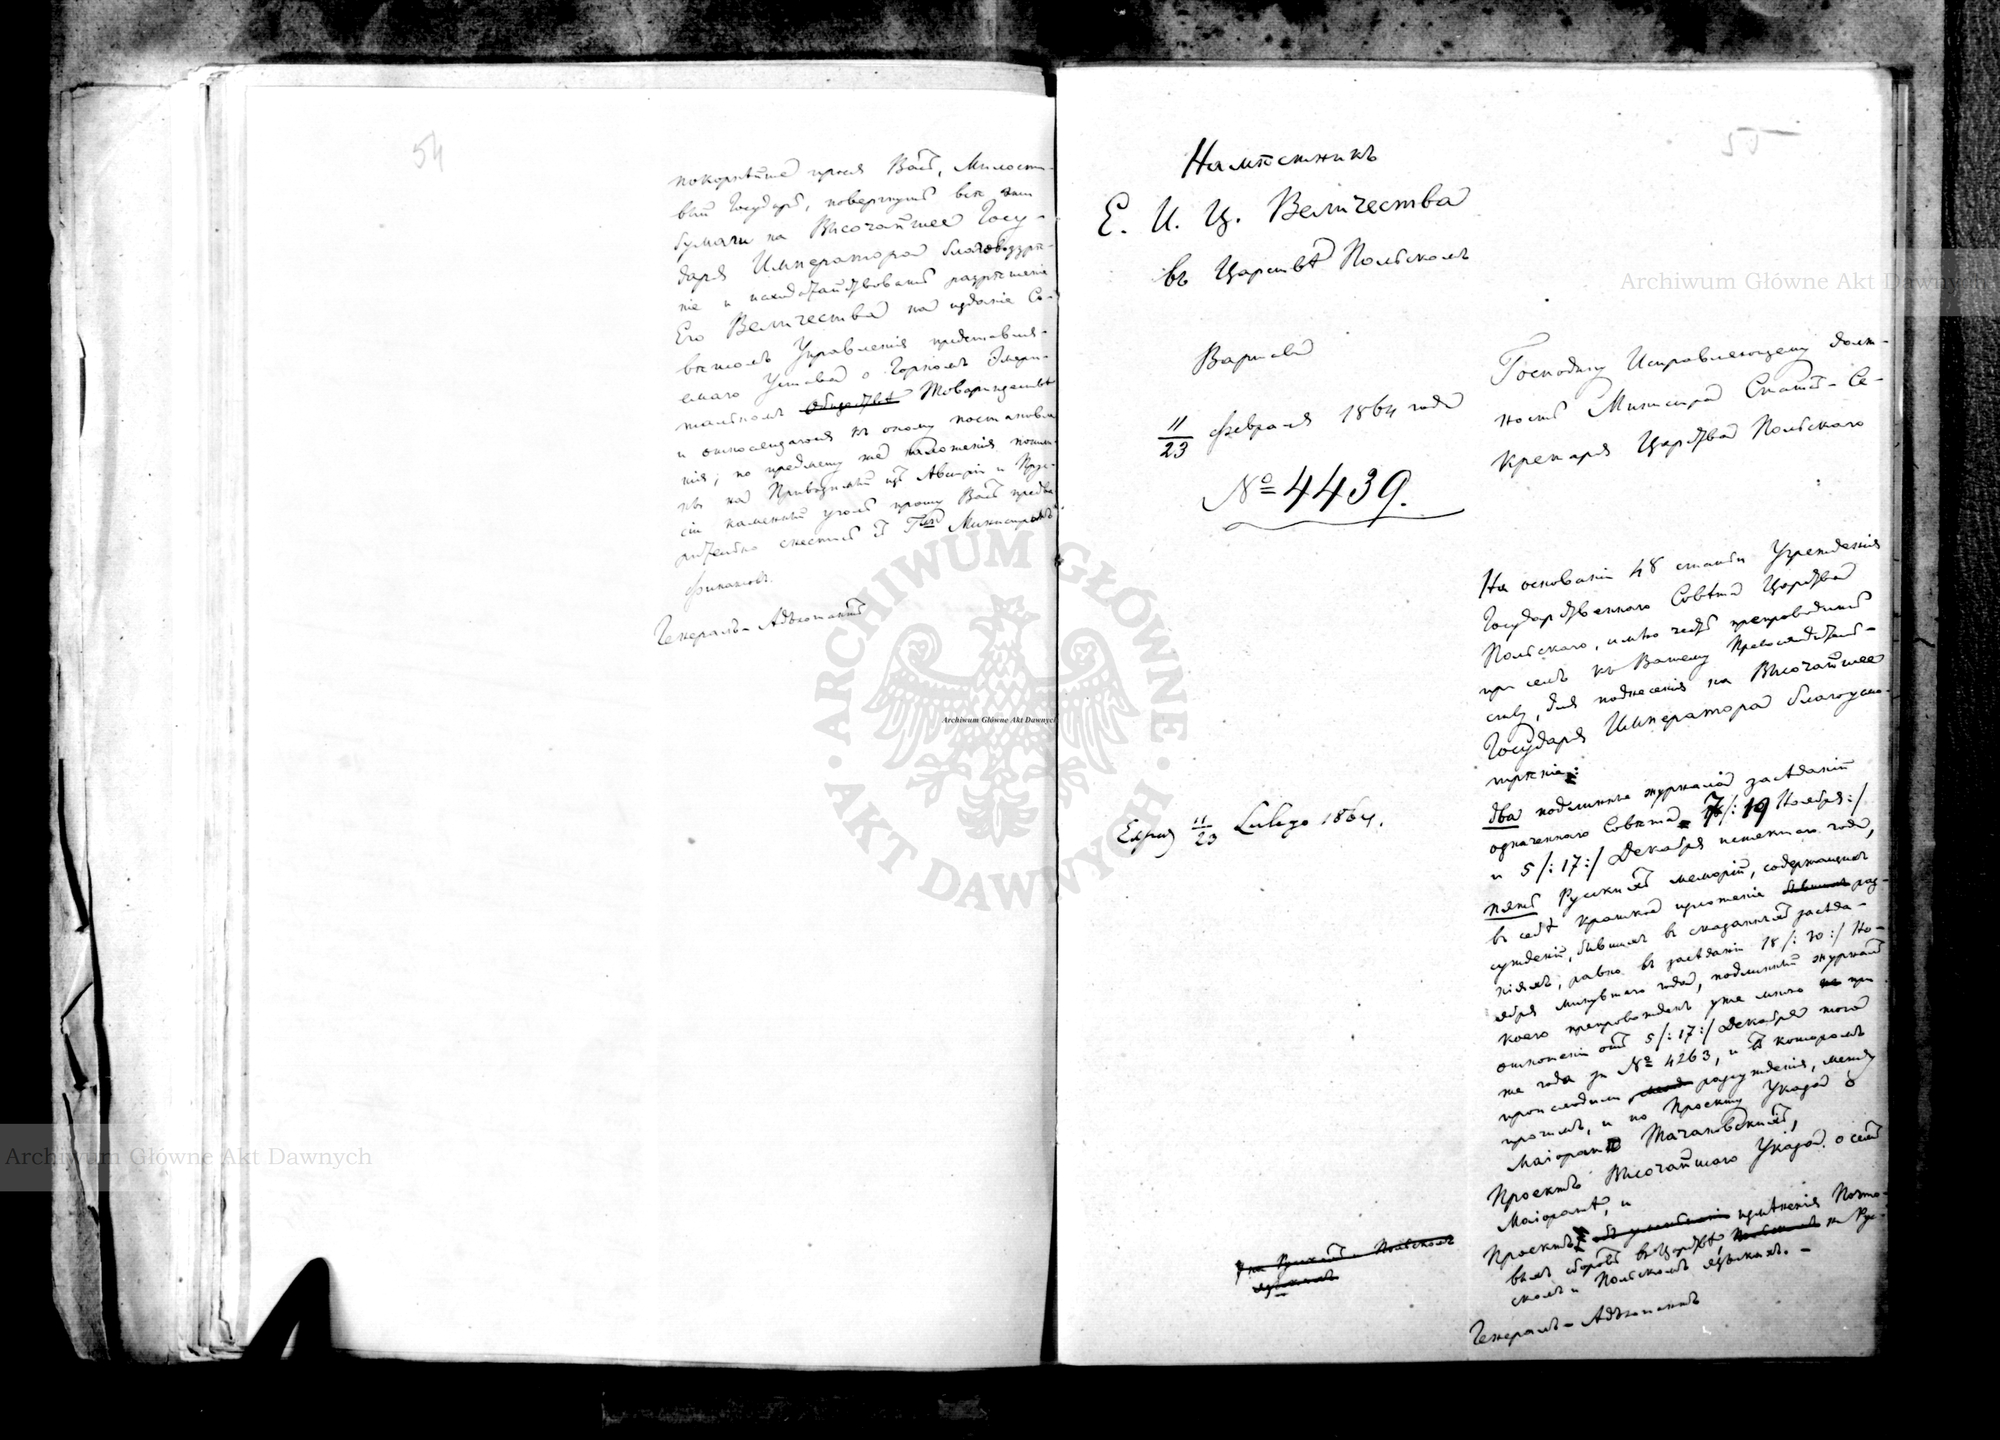 54
покорнѣйше прося Васъ, Милости-
вый Государь, повергнуть всѣ эти
бумаги на Высочайшее Госу-
даря Императора благовоззрѣ-
ніе и исходатайствовать разрѣшеніе
Его Величества на изданіе Со-
вѣтомъ Управленія представлен-
наго Устава о Горномъ Эмери-
тальномъ Обществѣ Товариществѣ
и относящагося къ оному постановле
нія; по предмету же наложенія пошли
ны на Привозимый изъ Австріи и Прус-
сіи каменный уголь прошу Васъ предва
рительно снестись съ Гмъ Министромъ
Финансовъ.
Генералъ-Адъютантъ
55
Намѣстникъ
Е. И. Ц. Величества
въ Царствѣ Польскомъ
Варшава
11/23 Февраля 1864 года
№ 4439.
Господину Исправляющему долж-
ность Министра Статсъ-Се-
кретаря Царства Польскаго
На основаніи 48 статьи Учрежденія
Государственнаго Совѣта Царства
Польскаго, имѣю честь препроводить
при семъ къ Вашему Превосходитель-
ству, для поднесенія на Высочайшее
Государя Императора благоусмо-
трѣніе:
два подлинные журнала засѣданій
означеннаго Совѣта 7/:19 Ноября:/
и 5/:17:/ Декабря истекшаго года,
пять Русскихъ меморій, содержащихъ
въ себѣ краткое изложеніе бывшихъ раз-
сужденій, бывшихъ въ сказанныхъ засѣда-
ніяхъ, равно въ засѣданіи 18/:30:/ Но-
ября минувшаго года, подлинный журналъ
коего препровожденъ уже мною при
отношеніи отъ 5/:17:/ Декабря того
же года за № 4263, и въ которомъ
происходили разсужденія, между
прочимъ, и по Проекту Указа о
Маіоратѣ Тачановскихъ,
Проектъ Высочайшаго Указа о семъ
Маіоратѣ, и
Проектъ измѣненія Почто-
выхъ сборовъ въ Царствѣ Польскомъ на Рус-
скомъ и Польскомъ языкахъ. –
Генералъ-Адъютантъ
11/23 Lutego 1864.
на Русскомъ и Польскомъ
языкахъ
Archiwum Główne Akt Dawnych
Archiwum Główne Akt Dawnych
Archiwum Główne Akt Dawnych
ARCHIWUM GŁÓWNE
AKT DAWNYCH